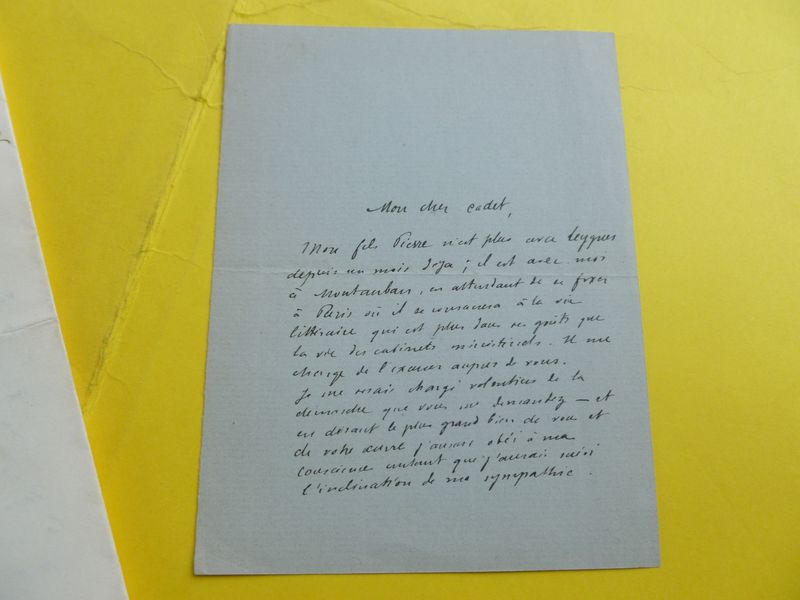 Mon cher cadet,
Mon fils Pierre n'est plus avec Leygues
depuis un mois déja ; il est avec moi
à Montauban, en attendant de se fixer
à Paris où il se consacrera à la vie
littéraire qui est plus dans ses goûts que
la vie des cabinets ministériels. Il me
charge de l'excuser auprès de vous.
Je me serais chargé volontiers de la
démarche que vous me demandez — et
en disant le plus grand bien de vous et
de votre œuvre j'aurais obéi à ma
conscience autant que j'aurais suivi
l'inclination de ma sympathie.